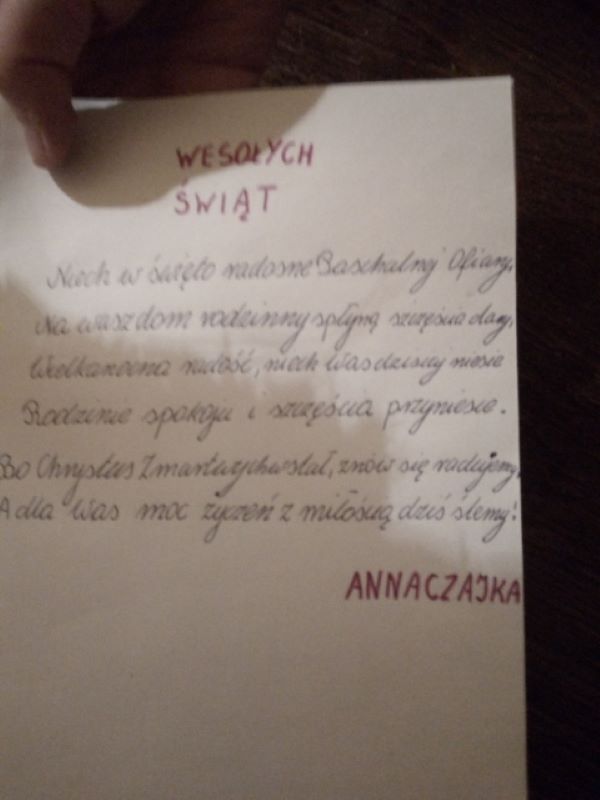 WESOŁYCH
ŚWIĄT
Niech w święto radosne Paschalnej Ofiary,
Na wasz dom rodzinny spłyną szczęścia dary,
Wielkanocna radość, niech Was dzisiaj niesie
Rodzinie spokoju i szczęścia przyniesie.
Bo Chrystus Zmartwychwstał, znów się radujemy,
A dla Was moc życzeń z miłością dziś ślemy!
ANNA CZAJKA